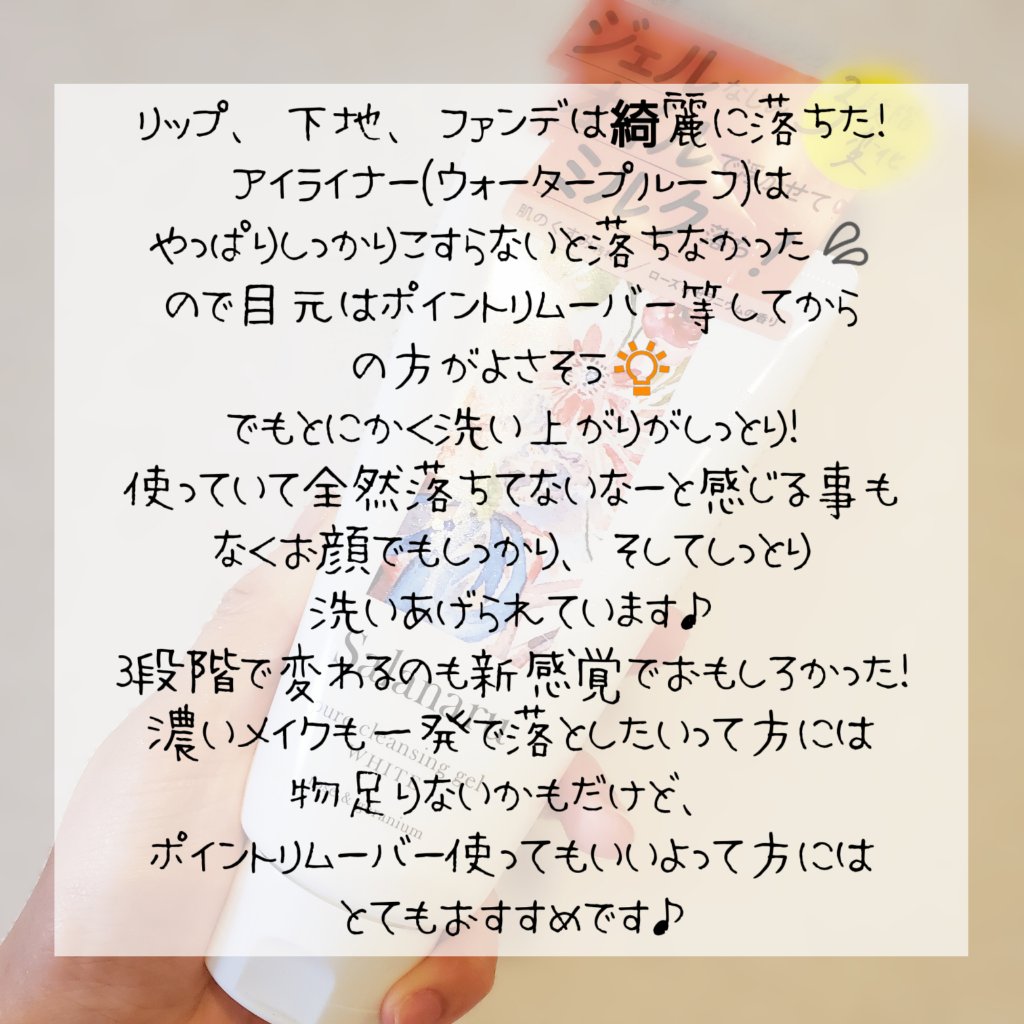 リップ、下地、ファンデは綺麗に落ちた!
アイライナー(ウォータープルーフ)は
やっぱりしっかりこすらないと落ちなかった
ので目元はポイントリムーバー等してから
の方がよさそう
でもとにかく洗い上がりがしっとり!
使っていて全然落ちてないなーと感じる事も
なくお顔でもしっかり、そしてしっとり
洗いあげられています♪
3段階で変わるのも新感覚でおもしろかった!
濃いメイクも一発で落としたいって方には
物足りないかもだけど、
ポイントリムーバー使ってもいいよって方には
とてもおすすめです♪
ジェル
ミルク
Salanaru
pure cleansing gel
WHITE
geranium